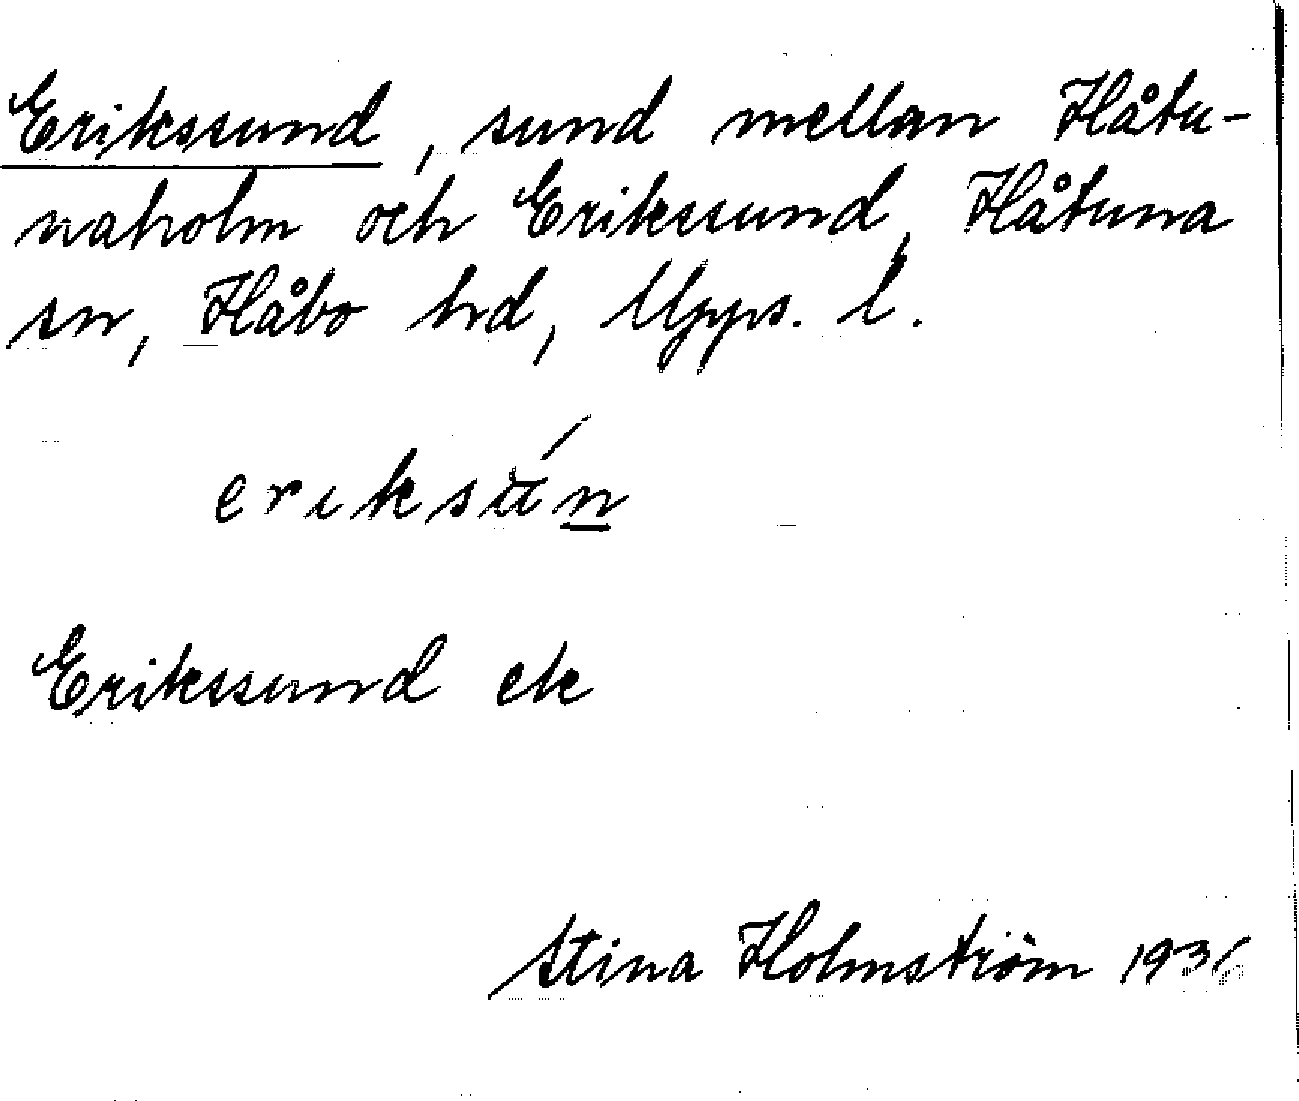 Erikssund, sund mellan Håtu-
naholm och Erikssund, Håtuna
sn, Håbo hd, Upps. l.
Erikssund ek
Stina Holmström